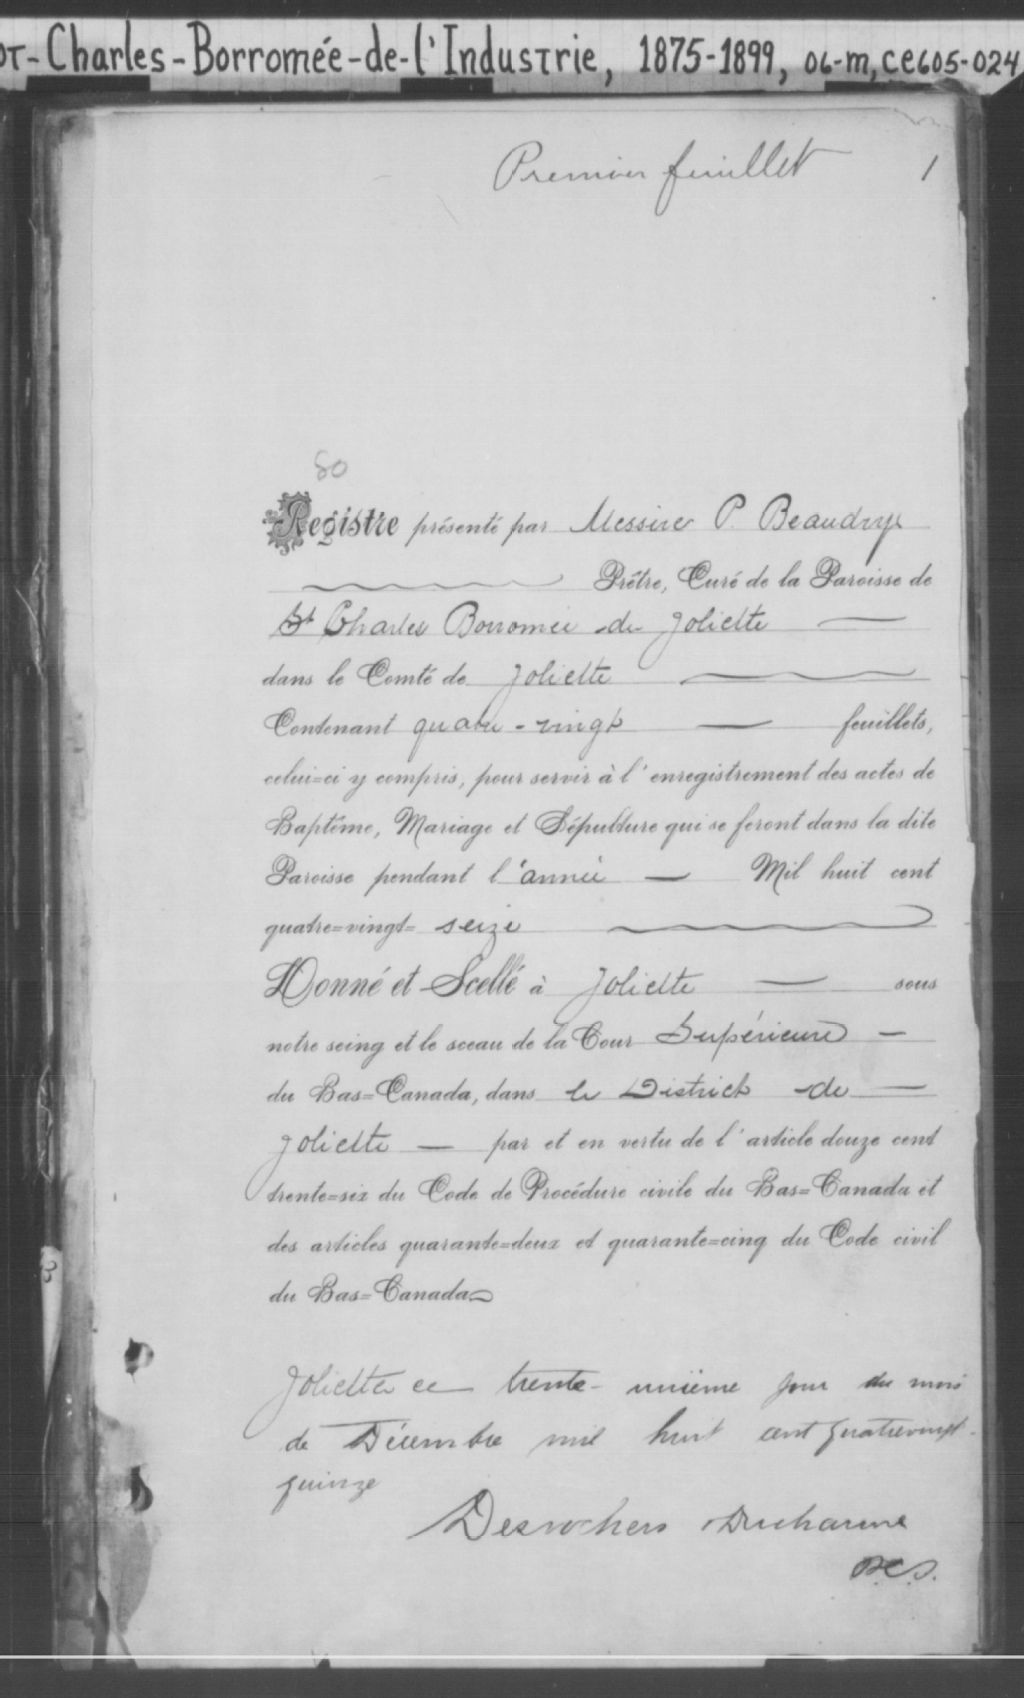 ot-Charles-Borromée-de-l'Industrie, 1875-1899, 06-m, ce605-024
Premier feuillet 1
80
Registre présenté par Messire P. Beaudry
Prêtre, Curé de la Paroisse de
St Charles Borromée de Joliette
dans le Comté de Joliette
Contenant quatre-vingt feuillets,
celui=ci y compris, pour servir à l'enregistrement des actes de
Baptême, Mariage et Sépulture qui se feront dans la dite
Paroisse pendant l'année Mil huit cent
quatre=vingt= seize
Donné et Scellé à Joliette sous
notre seing et le sceau de la Cour Supérieure
du Bas=Canada, dans le District de
Joliette par et en vertu de l'article douze cent
trente=six du Code de Procédure civile du Bas=Canada et
des articles quarante=deux et quarante=cinq du Code civil
du Bas=Canada
Joliette ce trente-unième jour du mois
de Décembre mil huit cent quatrevingt-
quinze
Desrochers Ducharme
P.C.S.